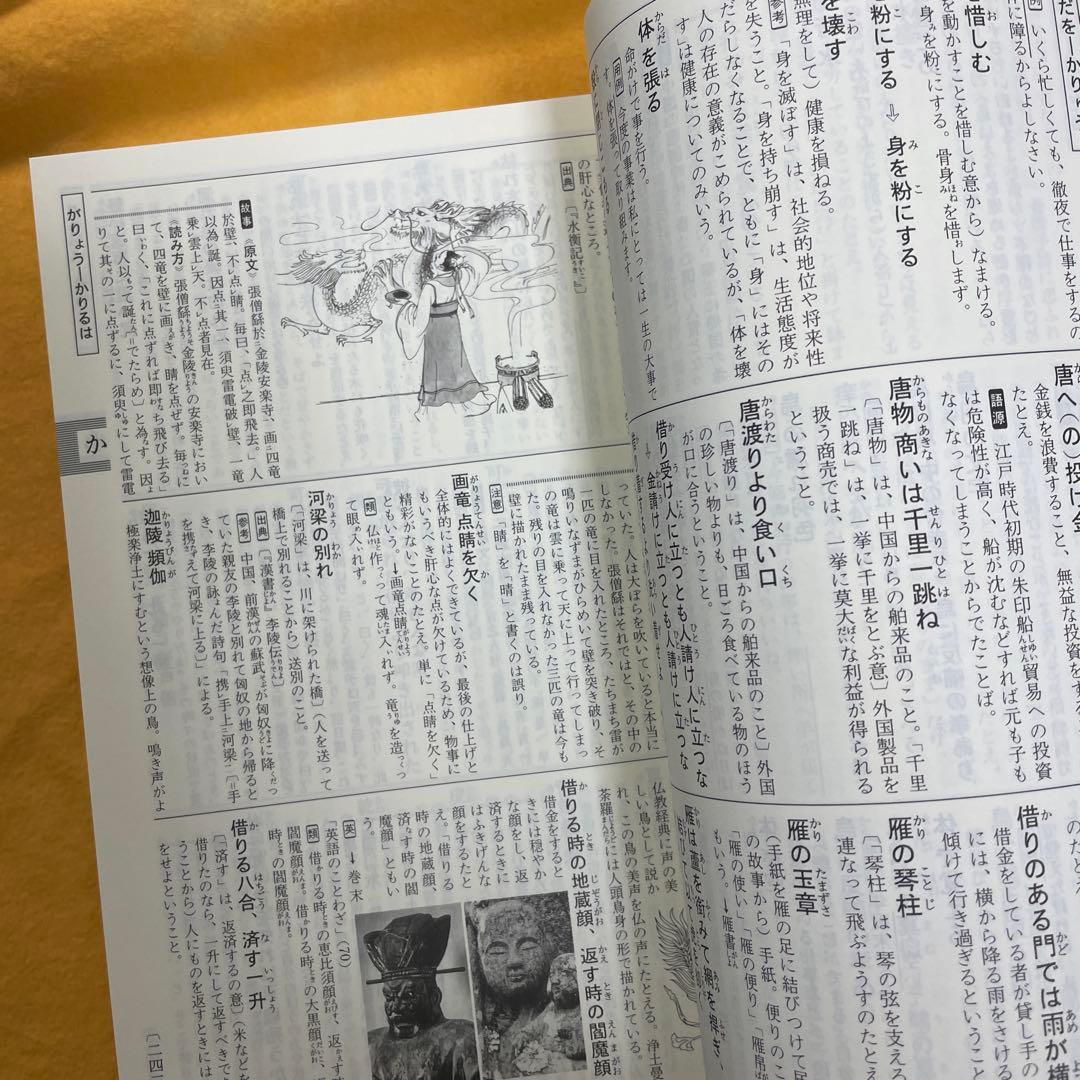 いくら忙しくても、徹夜で仕事をするの
に障るからよしなさい。
惜しむ
を動かすことを惜しむ意から）なまける。
身を粉にする。骨身を惜します。
粉にする ⇨ 身を粉にする
を壊す
無理をして）健康を損ねる。
参考 「身を滅ぼす」は、社会的地位や将来性
を失うこと。「身を持ち崩す」は、生活態度が
だらしなくなることで、ともに「身」にはその
人の存在の意義がこめられているが、「体を壊
す」は健康についてのみいう。
体を張る
命がけで事を行う。
用例 今度の事業は私にとっては一生の大事で
す。体を張って取り組みます。
唐へ（の）投げ金
金銭を浪費すること、無益な投資をする
たとえ。
語源 江戸時代初期の朱印船貿易への投資
は危険性が高く、船が沈むなどすれば元も子も
なくなってしまうことからでたことば。
唐物商いは千里一跳ね
〔「唐物」は、中国からの舶来品のこと。「千里
一跳ね」は、一挙に千里をとぶ意〕外国製品を
扱う商売では、一挙に莫大な利益が得られる
ということ。
唐渡りより食い口
〔「唐渡り」は、中国からの舶来品のこと〕外国
の珍しい物よりも、日ごろ食べている物のほう
が口に合うということ。
借り受け人に立つとも人請け人に立つな
⇨金請けに立つとも人請けに立つな
借りのある門では雨が横
借金をしている者が貸し手の
には、横から降る雨をさける
傾けて行き過ぎるということ
雁の琴柱
〔「琴柱」は、琴の弦を支える
連なって飛ぶようすのたとえ
雁の玉章
（手紙を雁の足に結びつけて
の故事から）手紙。便りのこ
「雁の使い」「雁の便り」「雁帛
もいう。→雁書
がりょう―かりるは
か
の肝心なところ。
出典 〔『水衡記』〕
故事 《原文》張僧繇於金陵安楽寺、画四竜
於壁、不点睛。毎曰、「点之即飛去。」人
以為誕。因点其一、須臾雷電破壁、一竜
乗雲上天。不点者見在。
《読み方》張僧繇、金陵の安楽寺におい
て、四竜を壁に画き、睛を点ぜず。毎に
曰く、「これに点ずれば即ち飛び去る」
と。人以って誕〔＝でたらめ〕と為す。因
りて其の一に点ずるに、須臾にして雷電
っていた。人は大ぼらを吹いていると本当に
しなかった。張僧繇はそれではと、その中の
一匹の竜に目を入れたところ、たちまち雷が
鳴りいなずまがひらめいて壁を突き破り、そ
の竜は雲に乗って天に上って行ってしまっ
た。残りの目を入れなかった三匹の竜は今も
壁に描かれたまま残っている。
注意 「睛」を「晴」と書くのは誤り。
画竜点睛を欠く
全体的にはよくできているが、最後の仕上げと
もいうべき肝心な点が欠けているため、物事に
精彩がないことのたとえ。単に「点睛を欠く」
ともいう。→画竜点睛
類 仏作って魂入れず。竜を造っ
て眼入れず。
河梁の別れ
〔「河梁」は、川に架けられた橋〕（人を送って
橋上で別れることから）送別のこと。
出典 〔『漢書』李陵伝〕
参考 中国、前漢の蘇武が匈奴に降っ
ていた親友の李陵と別れて匈奴の地から帰ると
き、李陵の詠んだ詩句「携手上河梁」〔＝手
を携えて河梁に上る〕による。
迦陵頻伽
極楽浄土にすむという想像上の鳥。鳴き声がよ
仏教経典に声の美
しい鳥として説か
れ、この鳥の美声を仏の声にたとえる。浄土曼
荼羅などには人頭鳥身の形で描かれている。
借りる時の地蔵顔、返す時の閻魔顔
借金をすると
きには穏やか
な顔をし、返
済するときに
はふきげんな
顔をするたと
え。「借りる
時の地蔵顔、
済す時の閻
魔顔」ともい
う。
英 →巻末
「英語のことわざ」（70）
類 借りる時の恵比須顔、返す時
の閻魔顔。借りる時の大黒顔、
時の閻魔顔。
借りる八合、済す一升
〔「済す」は、返済する の意〕（米などを
借りたのなら、一升にして返すべきで
ることから）人にものを返すときには
をせよということ。